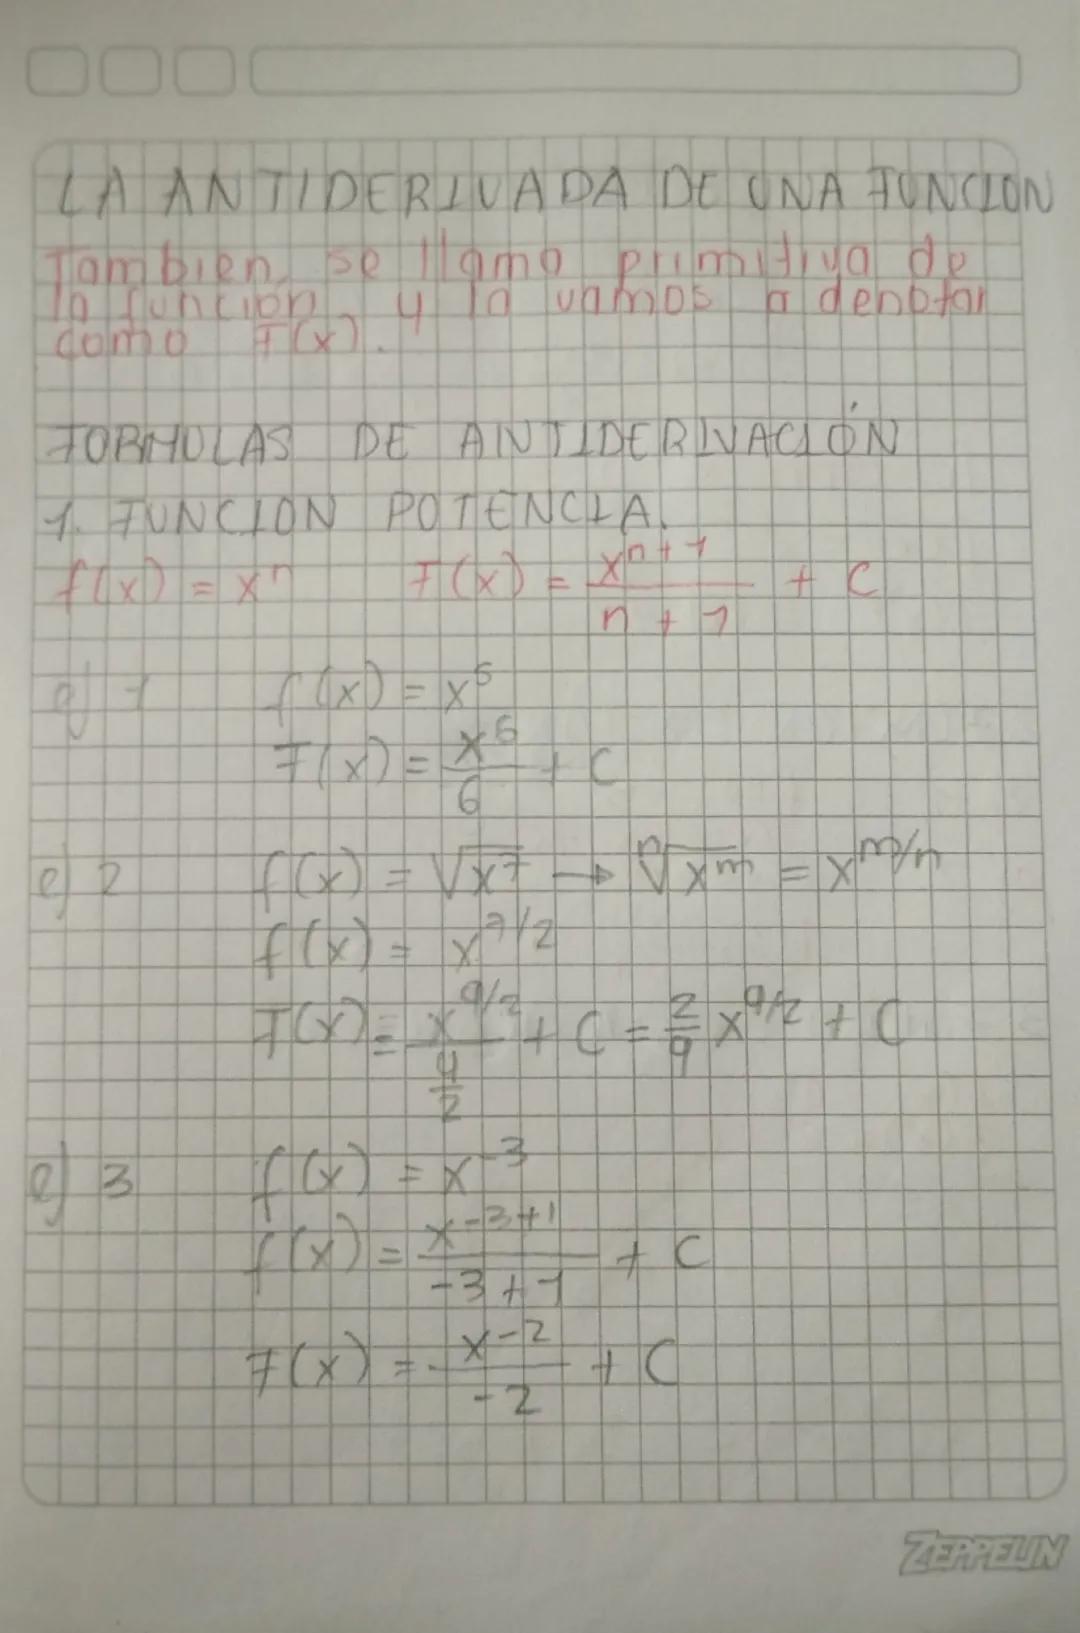 LA ANTIDERIVADA DE UNA FUNCION
Tambien se llama primitiva de
la funcion y la vamos a denotar
como F(x).
FORMULAS DE ANTIDERIVACIÓN
1. FUNCION POTENCIA.
f(x) = xⁿ F(x) = xⁿ⁺¹/n + 1 + C
e) 1 f(x) = x⁵
F(x) = x⁶/6 + C
e) 2 f(x) = √x⁷ → ⁿ√xᵐ = x^m/n
f(x) = x^7/2
F(x) = x^9/2 / 9/2 + C = 2/9 x^9/2 + C
e) 3 f(x) = x⁻³
f(x) = x⁻³⁺¹/-3 + 1 + C
F(x) = x⁻²/-2 + C
ZEPPELIN